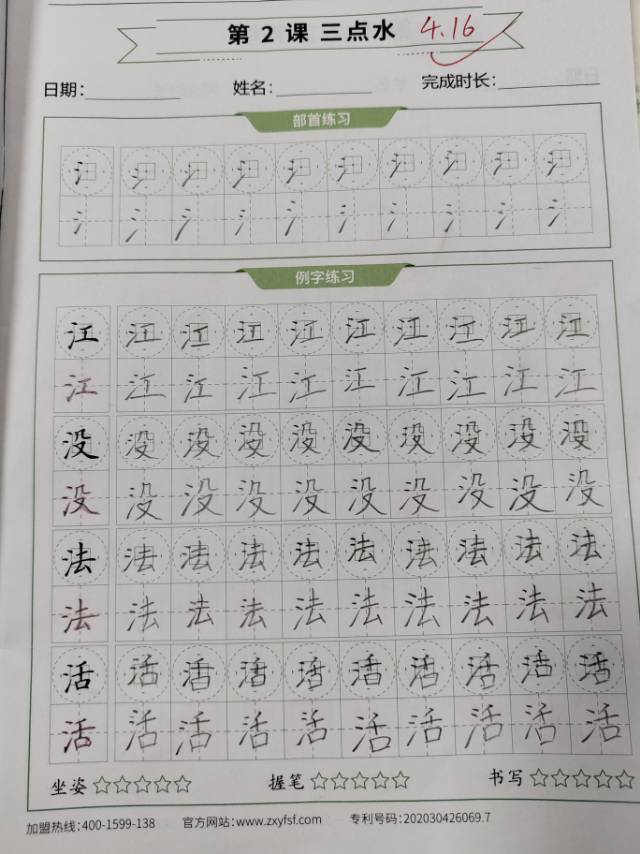 第 2 课 三点水 4.16
日期： 姓名： 完成时长：
部首练习
氵 氵 氵 氵 氵 氵 氵 氵 氵 氵
氵 氵 氵 氵 氵 氵 氵 氵 氵 氵
例字练习
江 江 江 江 江 江 江 江 江 江
江 江 江 江 江 江 江 江 江 江
没 没 没 没 没 没 没 没 没 没
没 没 没 没 没 没 没 没 没 没
法 法 法 法 法 法 法 法 法 法
法 法 法 法 法 法 法 法 法 法
活 活 活 活 活 活 活 活 活 活
活 活 活 活 活 活 活 活 活 活
坐姿☆☆☆☆☆ 握笔☆☆☆☆☆ 书写☆☆☆☆☆
加盟热线：400-1599-138 官方网站：www.zxyfsf.com 专利号码：202030426069.7